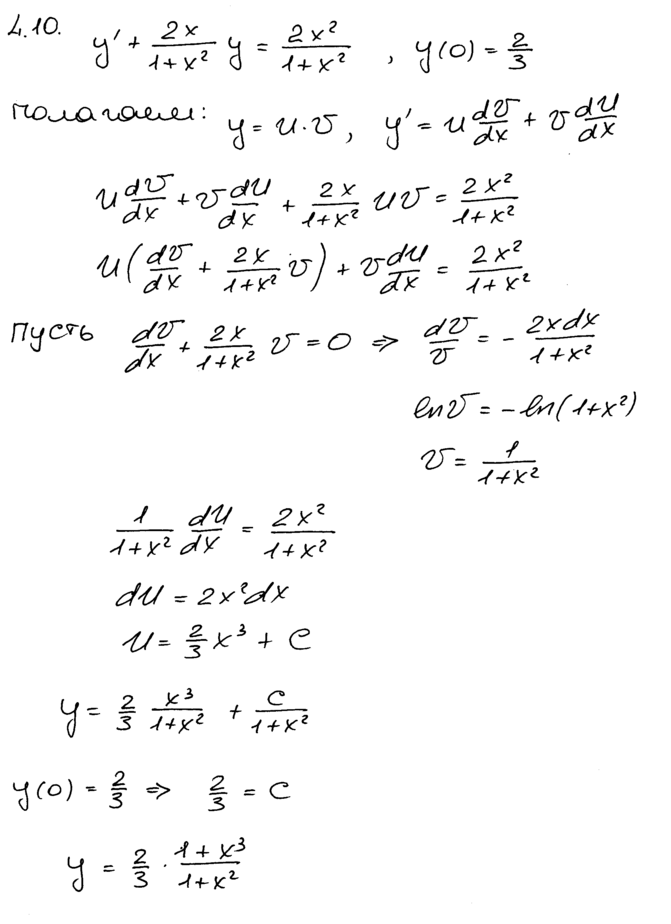 4.10. y' + 2x/(1+x²) y = 2x²/(1+x²) , y(0) = 2/3
полагаем: y = u·v, y' = u dv/dx + v du/dx
u dv/dx + v du/dx + 2x/(1+x²) uv = 2x²/(1+x²)
u(dv/dx + 2x/(1+x²) v) + v du/dx = 2x²/(1+x²)
Пусть dv/dx + 2x/(1+x²) v = 0 ⇒ dv/v = - 2xdx/(1+x²)
ln v = -ln(1+x²)
v = 1/(1+x²)
1/(1+x²) du/dx = 2x²/(1+x²)
du = 2x²dx
u = 2/3 x³ + C
y = 2/3 x³/(1+x²) + C/(1+x²)
y(0) = 2/3 ⇒ 2/3 = C
y = 2/3 · (1+x³)/(1+x²)